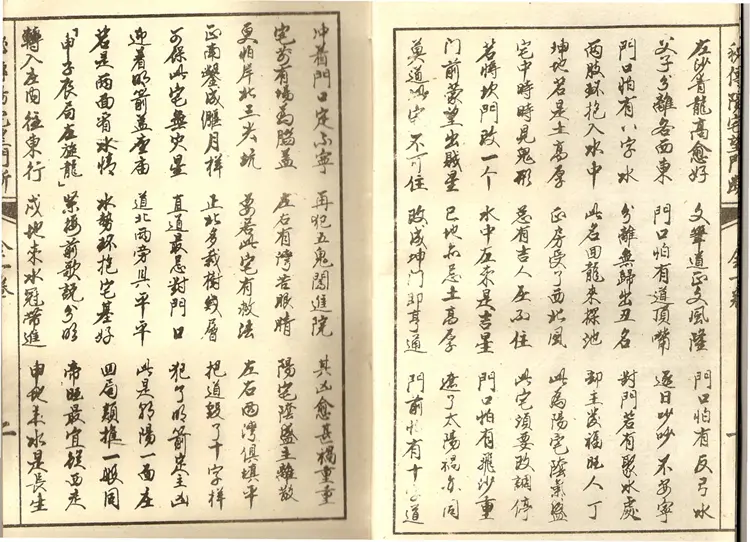 左沙青龍高愈好 文筆道正文風隆 門口怕有反弓水
父子分離各西東 門口怕有道頂嘴 逐日吵吵不安寧
門口怕有八字水 分離無歸出丑名 對門若有聚水處
两股環抱入水中 此名回龍來探池 却主發福旺人丁
坤地若是土高厚 正房受了西北風 此為陽宅陰氣盛
宅中時時見鬼形 总有吉人在不住 此宅須要改調停
若將坎門改一个 水中立来是吉星 門口怕有飛沙重
門前蒙望出賊星 巳地亦忌土高厚 遮了太陽禍亦同
莫道此宅不可住 改成坤門即亨通 門前怕有十字道
冲着門口定不寧 再犯五鬼闖進院 其凶愈甚禍重重
宅前有塲為腦盖 左右有灣若眼睛 陽宅陰盛主離散
更怕岸北三尖坑 要若此宅有救法 左右两灣俱填平
正南鑿成月样 正北多栽樹幾層 把道毀了十字样
可保此宅無火星 直道最忌對門口 犯了明箭是主凶
迎着明箭盖座庙 道北两旁具平平 此是朝陽一面座
若是两面有水情 水勢環抱宅基好 四局類推一般同
「申子辰局在旋龍」 緊接前歌説分明 帝旺最宜從西走
轉入左面往東行 戌地来水冠帶進 申地来水是長生
全一卷 二